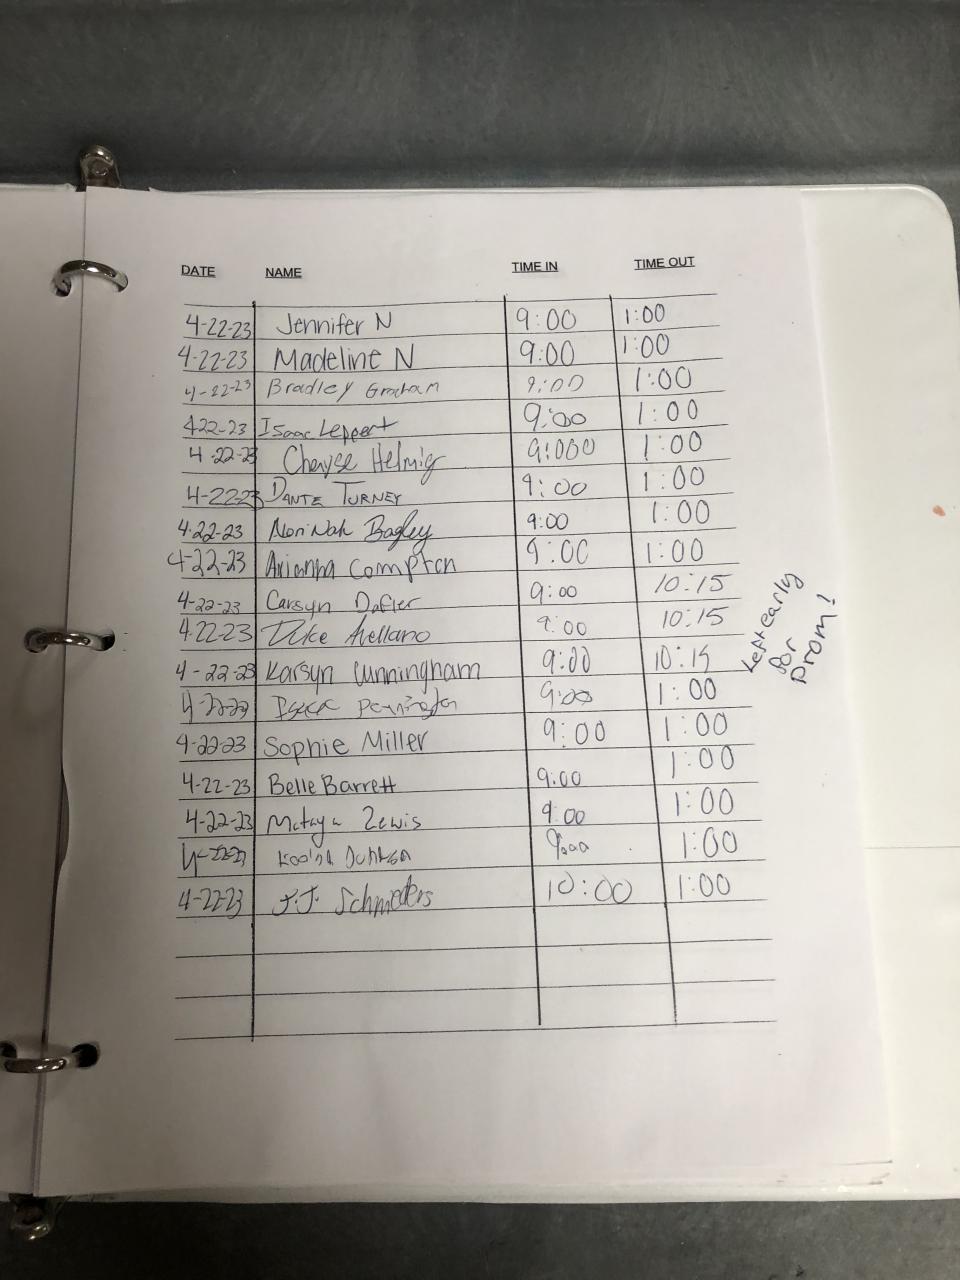 DATE NAME TIME IN TIME OUT
4-22-23 Jennifer N 9:00 1:00
4-22-23 Madeline N 9:00 1:00
4-22-23 Bradley Graham 9:00 1:00
422-23 Isaac Leppert 9:00 1:00
4-22-23 Cheryse Helmig 9:000 1:00
4-22-23 DANTE TURNEY 9:00 1:00
4-22-23 Bagley 9:00 1:00
4-22-23 Arianna Compton 9:00 1:00
4-22-23 Carsyn Dafler 9:00 10:15
4-22-23 Duke Arellano 9:00 10:15
4-22-23 Karsyn Cunningham 9:00 10:15
Left early
for
prom!
Pennington 9:00 1:00
4-22-23 Sophie Miller 9:00 1:00
4-22-23 Belle Barrett 9:00 1:00
4-22-23 Mataya Lewis 9:00 1:00
1:00
4-22-23 J.J. Schmeders 10:00 1:00